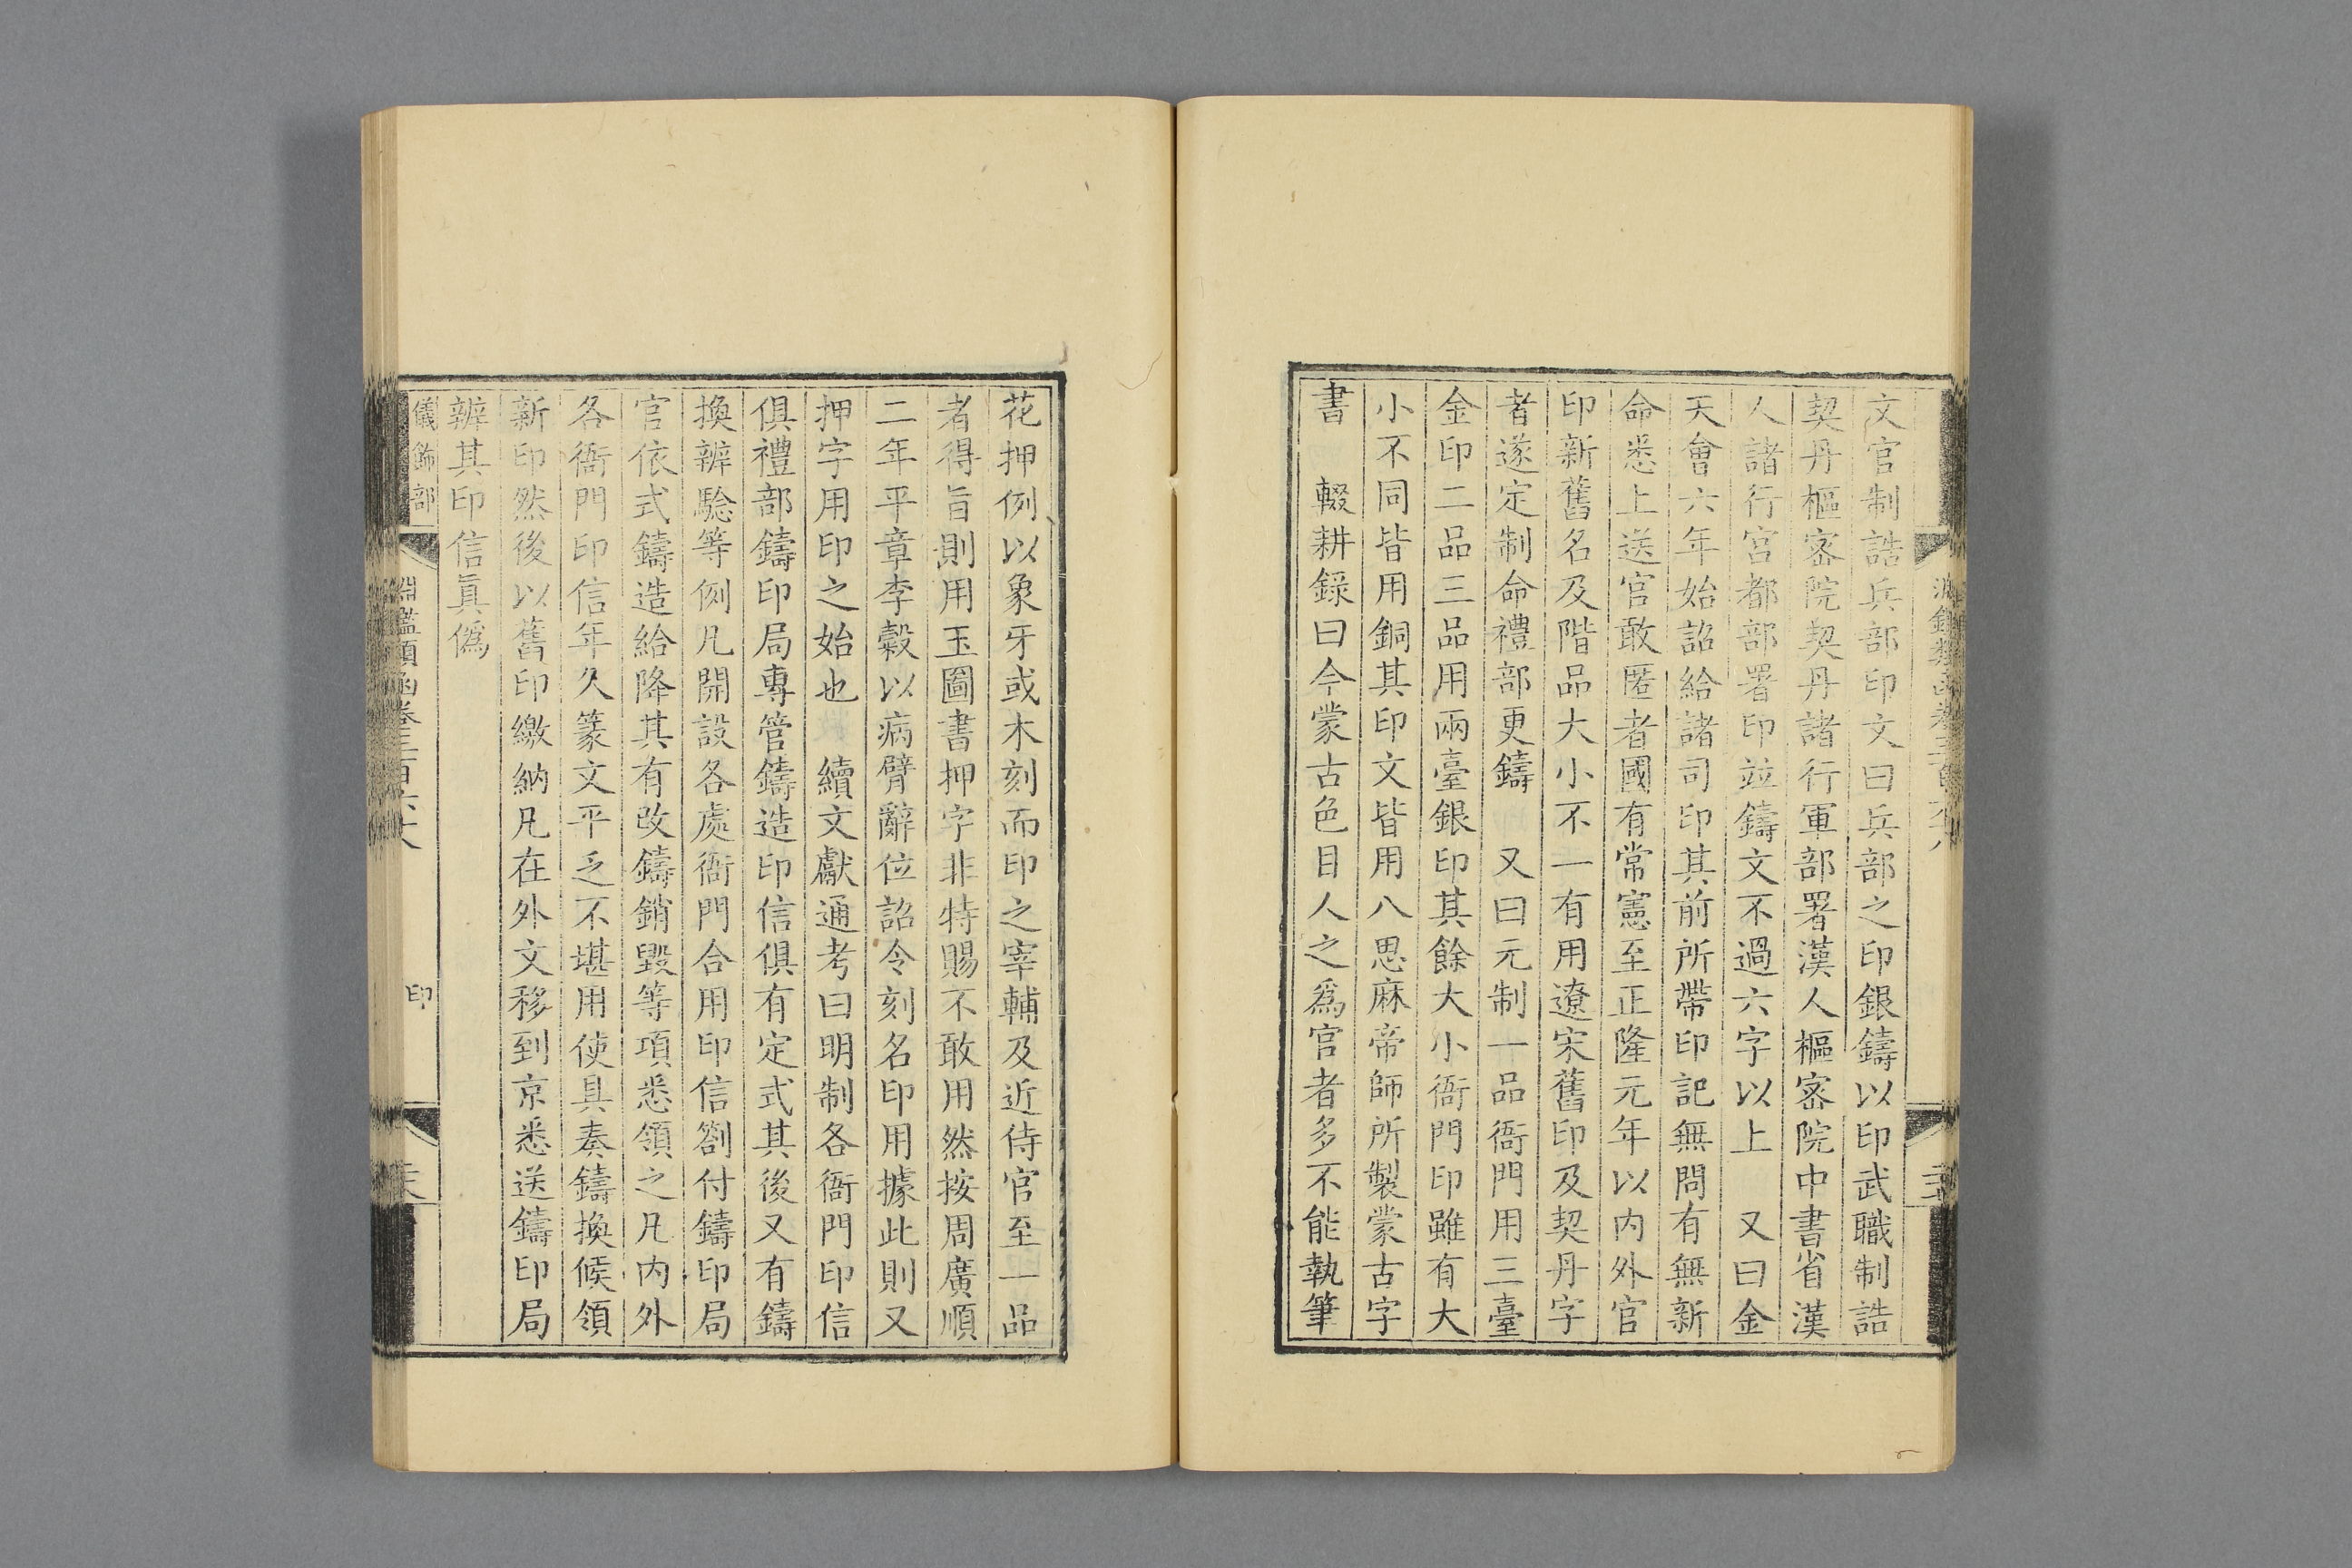 文官制誥兵部印文曰兵部之印銀鑄以印武職制誥
契丹樞密院契丹諸行軍部署漢人樞密院中書省漢
人諸行宮都部署印竝鑄文不過六字以上 又曰金
天會六年始詔給諸司印其前所帶印記無問有無新
命悉上送官敢匿者國有常憲至正隆元年以內外官
印新舊名及階品大小不一有用遼宋舊印及契丹字
者遂定制命禮部更鑄 又曰元制一品衙門用三臺
金印二品三品用兩臺銀印其餘大小衙門印雖有大
小不同皆用銅其印文皆用八思麻帝師所製蒙古字
書 輟耕錄曰今蒙古色目人之爲官者多不能執筆
花押例以象牙或木刻而印之宰輔及近侍官至一品
者得旨則用玉圖書押字非特賜不敢用然按周廣順
二年平章李穀以病臂辭位詔令刻名印用據此則又
押字用印之始也 續文獻通考曰明制各衙門印信
俱禮部鑄印局專管鑄造印信俱有定式其後又有鑄
換辨驗等例凡開設各處衙門合用印信劄付鑄印局
官依式鑄造給降其有改鑄銷毀等項悉領之凡內外
各衙門印信年久篆文平乏不堪用使具奏鑄換候領
新印然後以舊印繳納凡在外文移到京悉送鑄印局
辨其印信眞僞
儀飾部
淵鑑類函卷三百
印